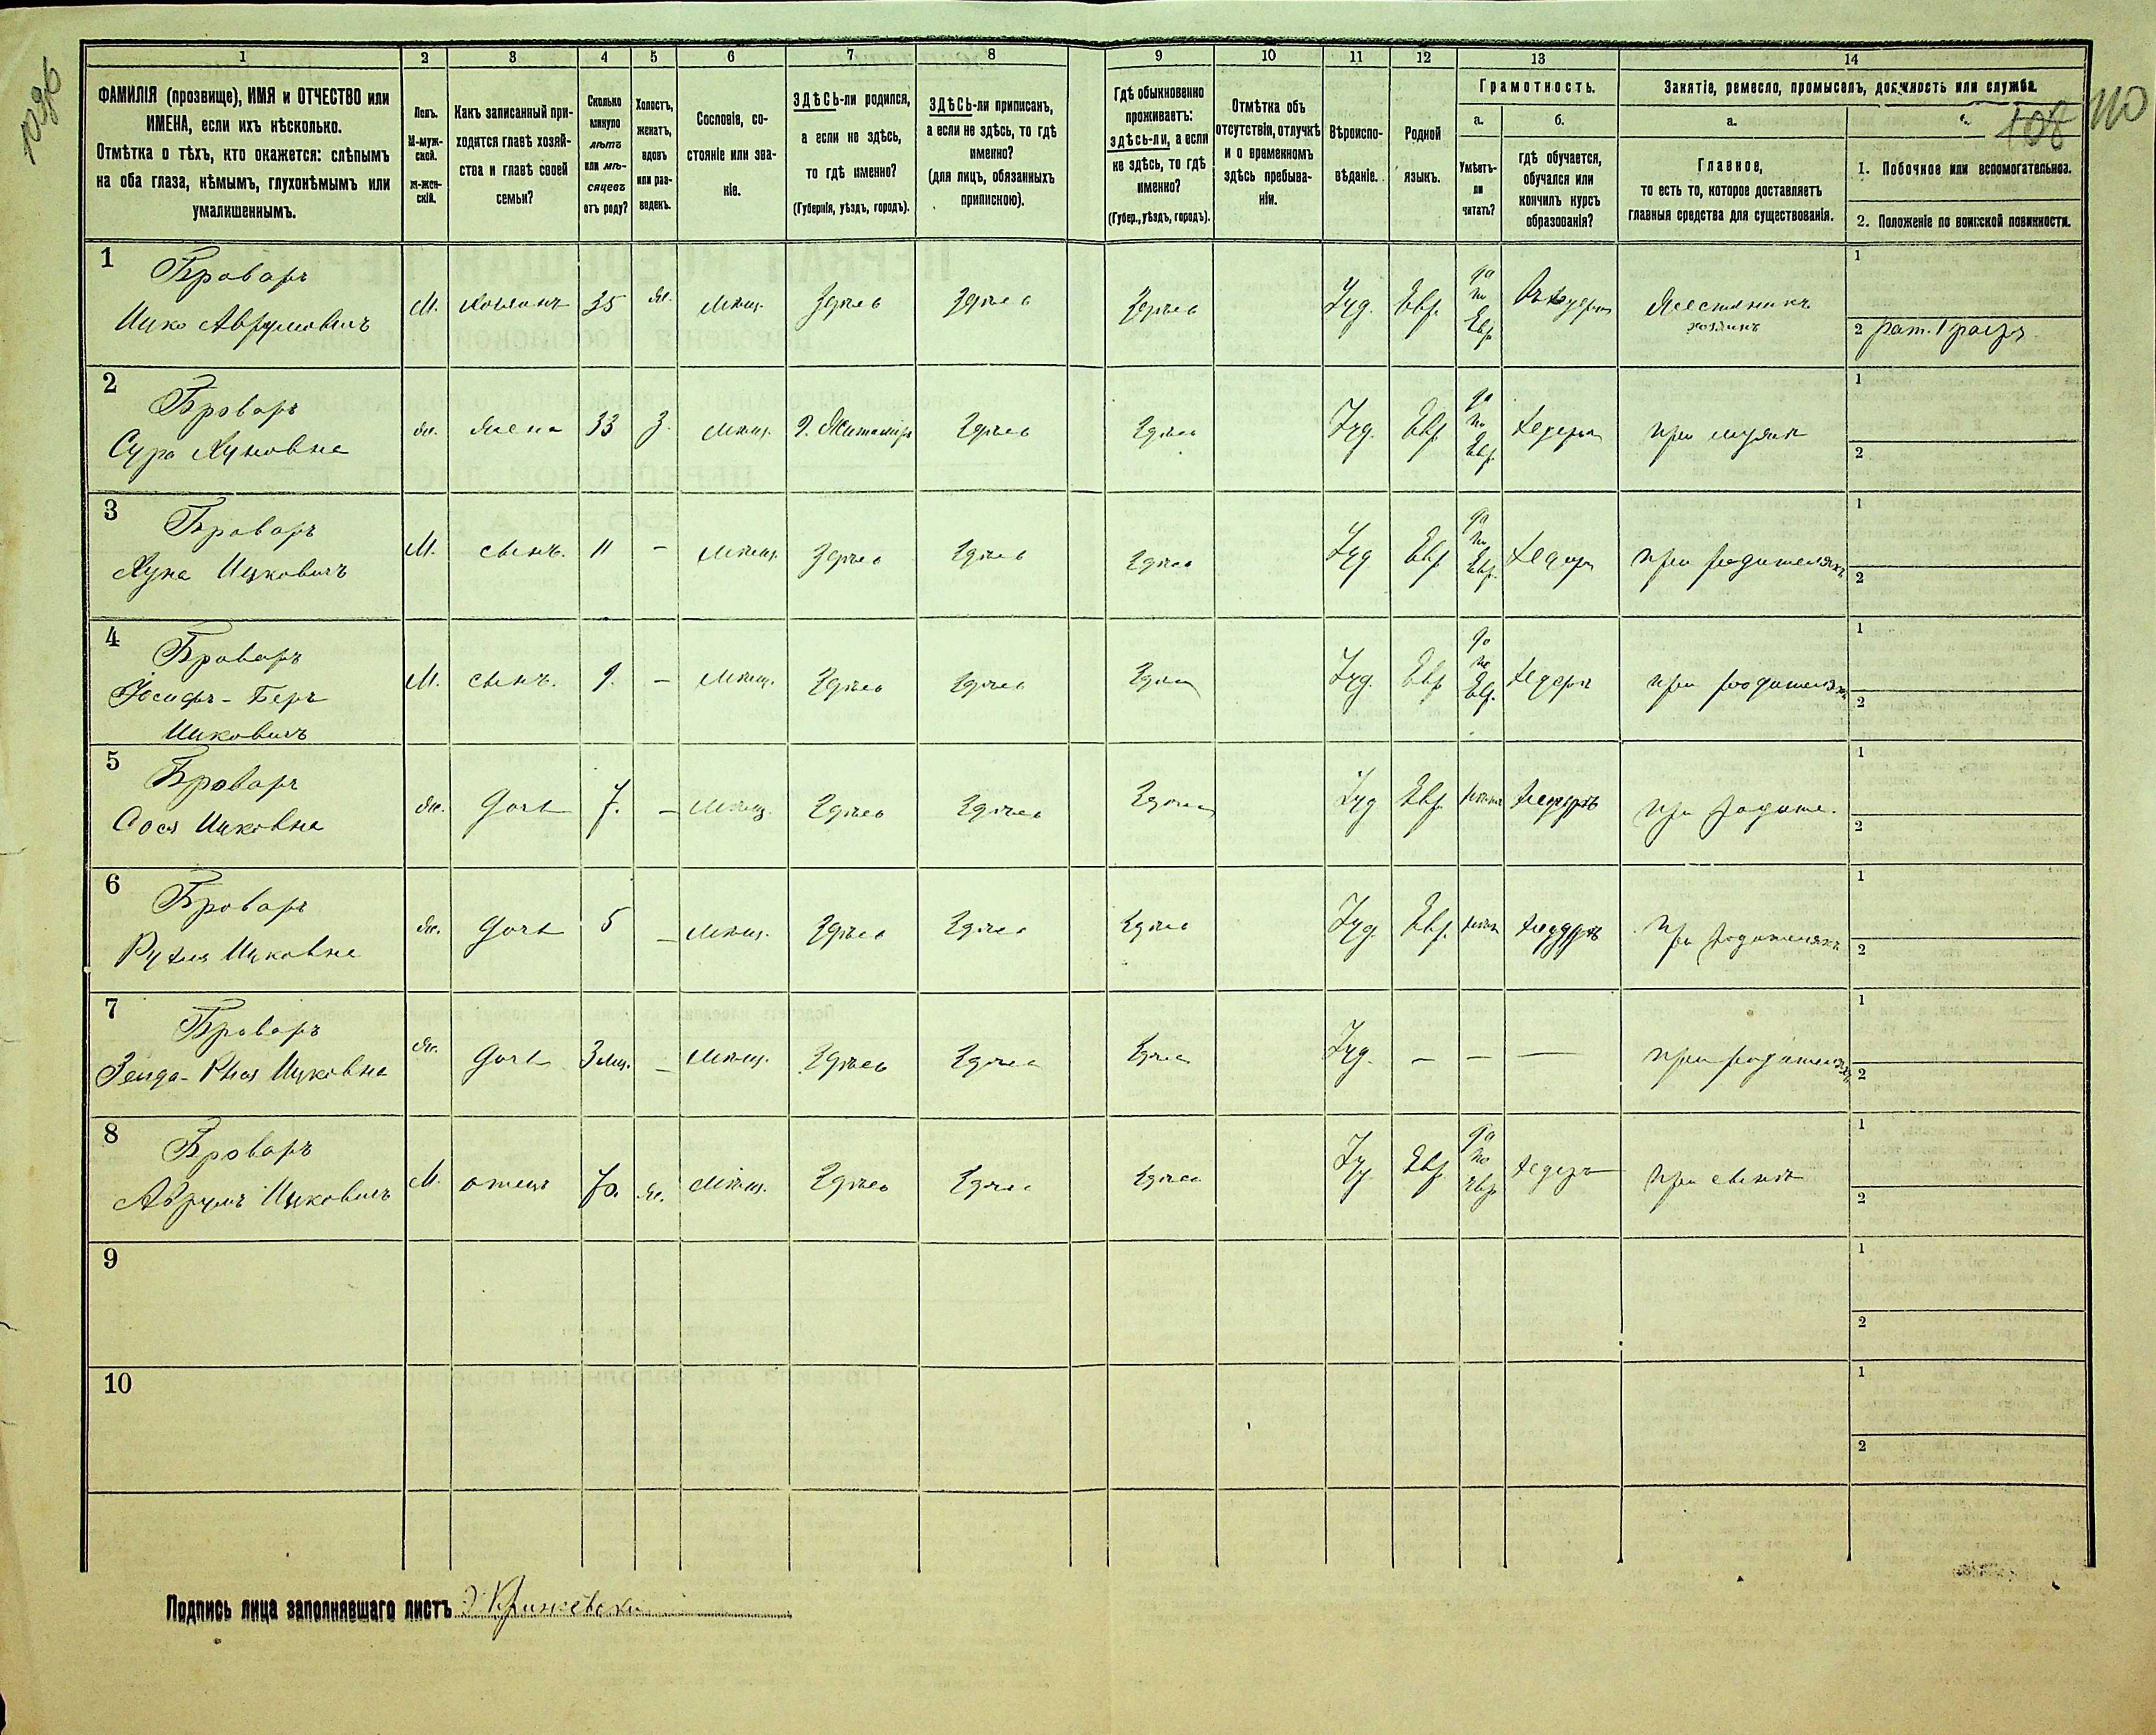 1096
108 110
1 2 3 4 5 6 7 8 9 10 11 12 13 14
ФАМИЛІЯ (прозвище), ИМЯ и ОТЧЕСТВО или
ИМЕНА, если ихъ нѣсколько.
Отмѣтка о тѣхъ, кто окажется: слѣпымъ
на оба глаза, нѣмымъ, глухонѣмымъ или
умалишеннымъ.
Полъ.
М-муж-
ской.
ж-жен-
скій.
Какъ записанный при-
ходится главѣ хозяй-
ства и главѣ своей
семьи?
Сколько
минуло
лѣтъ
или мѣ-
сяцевъ
отъ роду?
Холостъ,
женатъ,
вдовъ
или раз-
веденъ.
Сословіе, со-
стояніе или зва-
ніе.
ЗДѢСЬ-ли родился,
а если не здѣсь,
то гдѣ именно?
(Губернія, уѣздъ, городъ).
ЗДѢСЬ-ли приписанъ,
а если не здѣсь, то гдѣ
именно?
(для лицъ, обязанныхъ
припискою).
Гдѣ обыкновенно
проживаетъ:
здѣсь-ли, а если
не здѣсь, то гдѣ
именно?
(Губер., уѣздъ, городъ).
Отмѣтка объ
отсутствіи, отлучкѣ
и о временномъ
здѣсь пребыва-
ніи.
Вѣроиспо-
вѣданіе.
Родной
языкъ.
Грамотность.
а.
Умѣетъ-
ли
читать?
б.
гдѣ обучается,
обучался или
кончилъ курсъ
образованія?
Занятіе, ремесло, промыселъ, должность или служба.
а.
Главное,
то есть то, которое доставляетъ
главныя средства для существованія.
1. Побочное или вспомогательное.
2. Положеніе по воинской повинности.
1 Броваръ
Ицко Аврумовичъ
М. хозяинъ 35 ж. мѣщ. Здѣсь Здѣсь Здѣсь Іуд. Евр. да по Евр. Въ хедерѣ
хозяинъ
1
2 рат. 1 разр.
2 Броваръ
Сура Хуновна
ж. жена 33 з. мѣщ. г. Житомиръ Здѣсь Здѣсь Іуд. Евр. да по Евр. хедеръ при мужѣ
1
2
3 Броваръ
Хуна Ицковичъ
М. сынъ. 11 — мѣщ. Здѣсь Здѣсь Здѣсь Іуд. Евр. да по Евр. хедеръ при родителяхъ
1
2
4 Броваръ
Іосифъ-Беръ
Ицковичъ
М. сынъ. 9. — мѣщ. Здѣсь Здѣсь Здѣсь Іуд. Евр. да по Евр. хедеръ при родителяхъ
1
2
5 Броваръ
Сося Ицковна
ж. дочь 7. — мѣщ. Здѣсь Здѣсь Здѣсь Іуд. Евр. при родите.
1
2
6 Броваръ
Рухля Ицковна
ж. дочь 5 — мѣщ. Здѣсь Здѣсь Здѣсь Іуд. Евр. при родителяхъ
1
2
7 Броваръ
Ицковна
ж. дочь 3 мц. — мѣщ. Здѣсь Здѣсь Здѣсь Іуд. — — — при родителяхъ
1
2
8 Броваръ
Аврумъ Ицковичъ
М. отецъ 70. ж. мѣщ. Здѣсь Здѣсь Здѣсь Іуд. Евр. да по Евр. хедеръ при сынѣ
1
2
9
1
2
10
1
2
Подпись лица заполнявшаго листъ